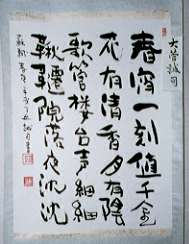 大菅誠司
春宵一刻値千金
花有清香月有陰
歌管楼台声細細
鞦韆院落夜沈沈
蘇軾